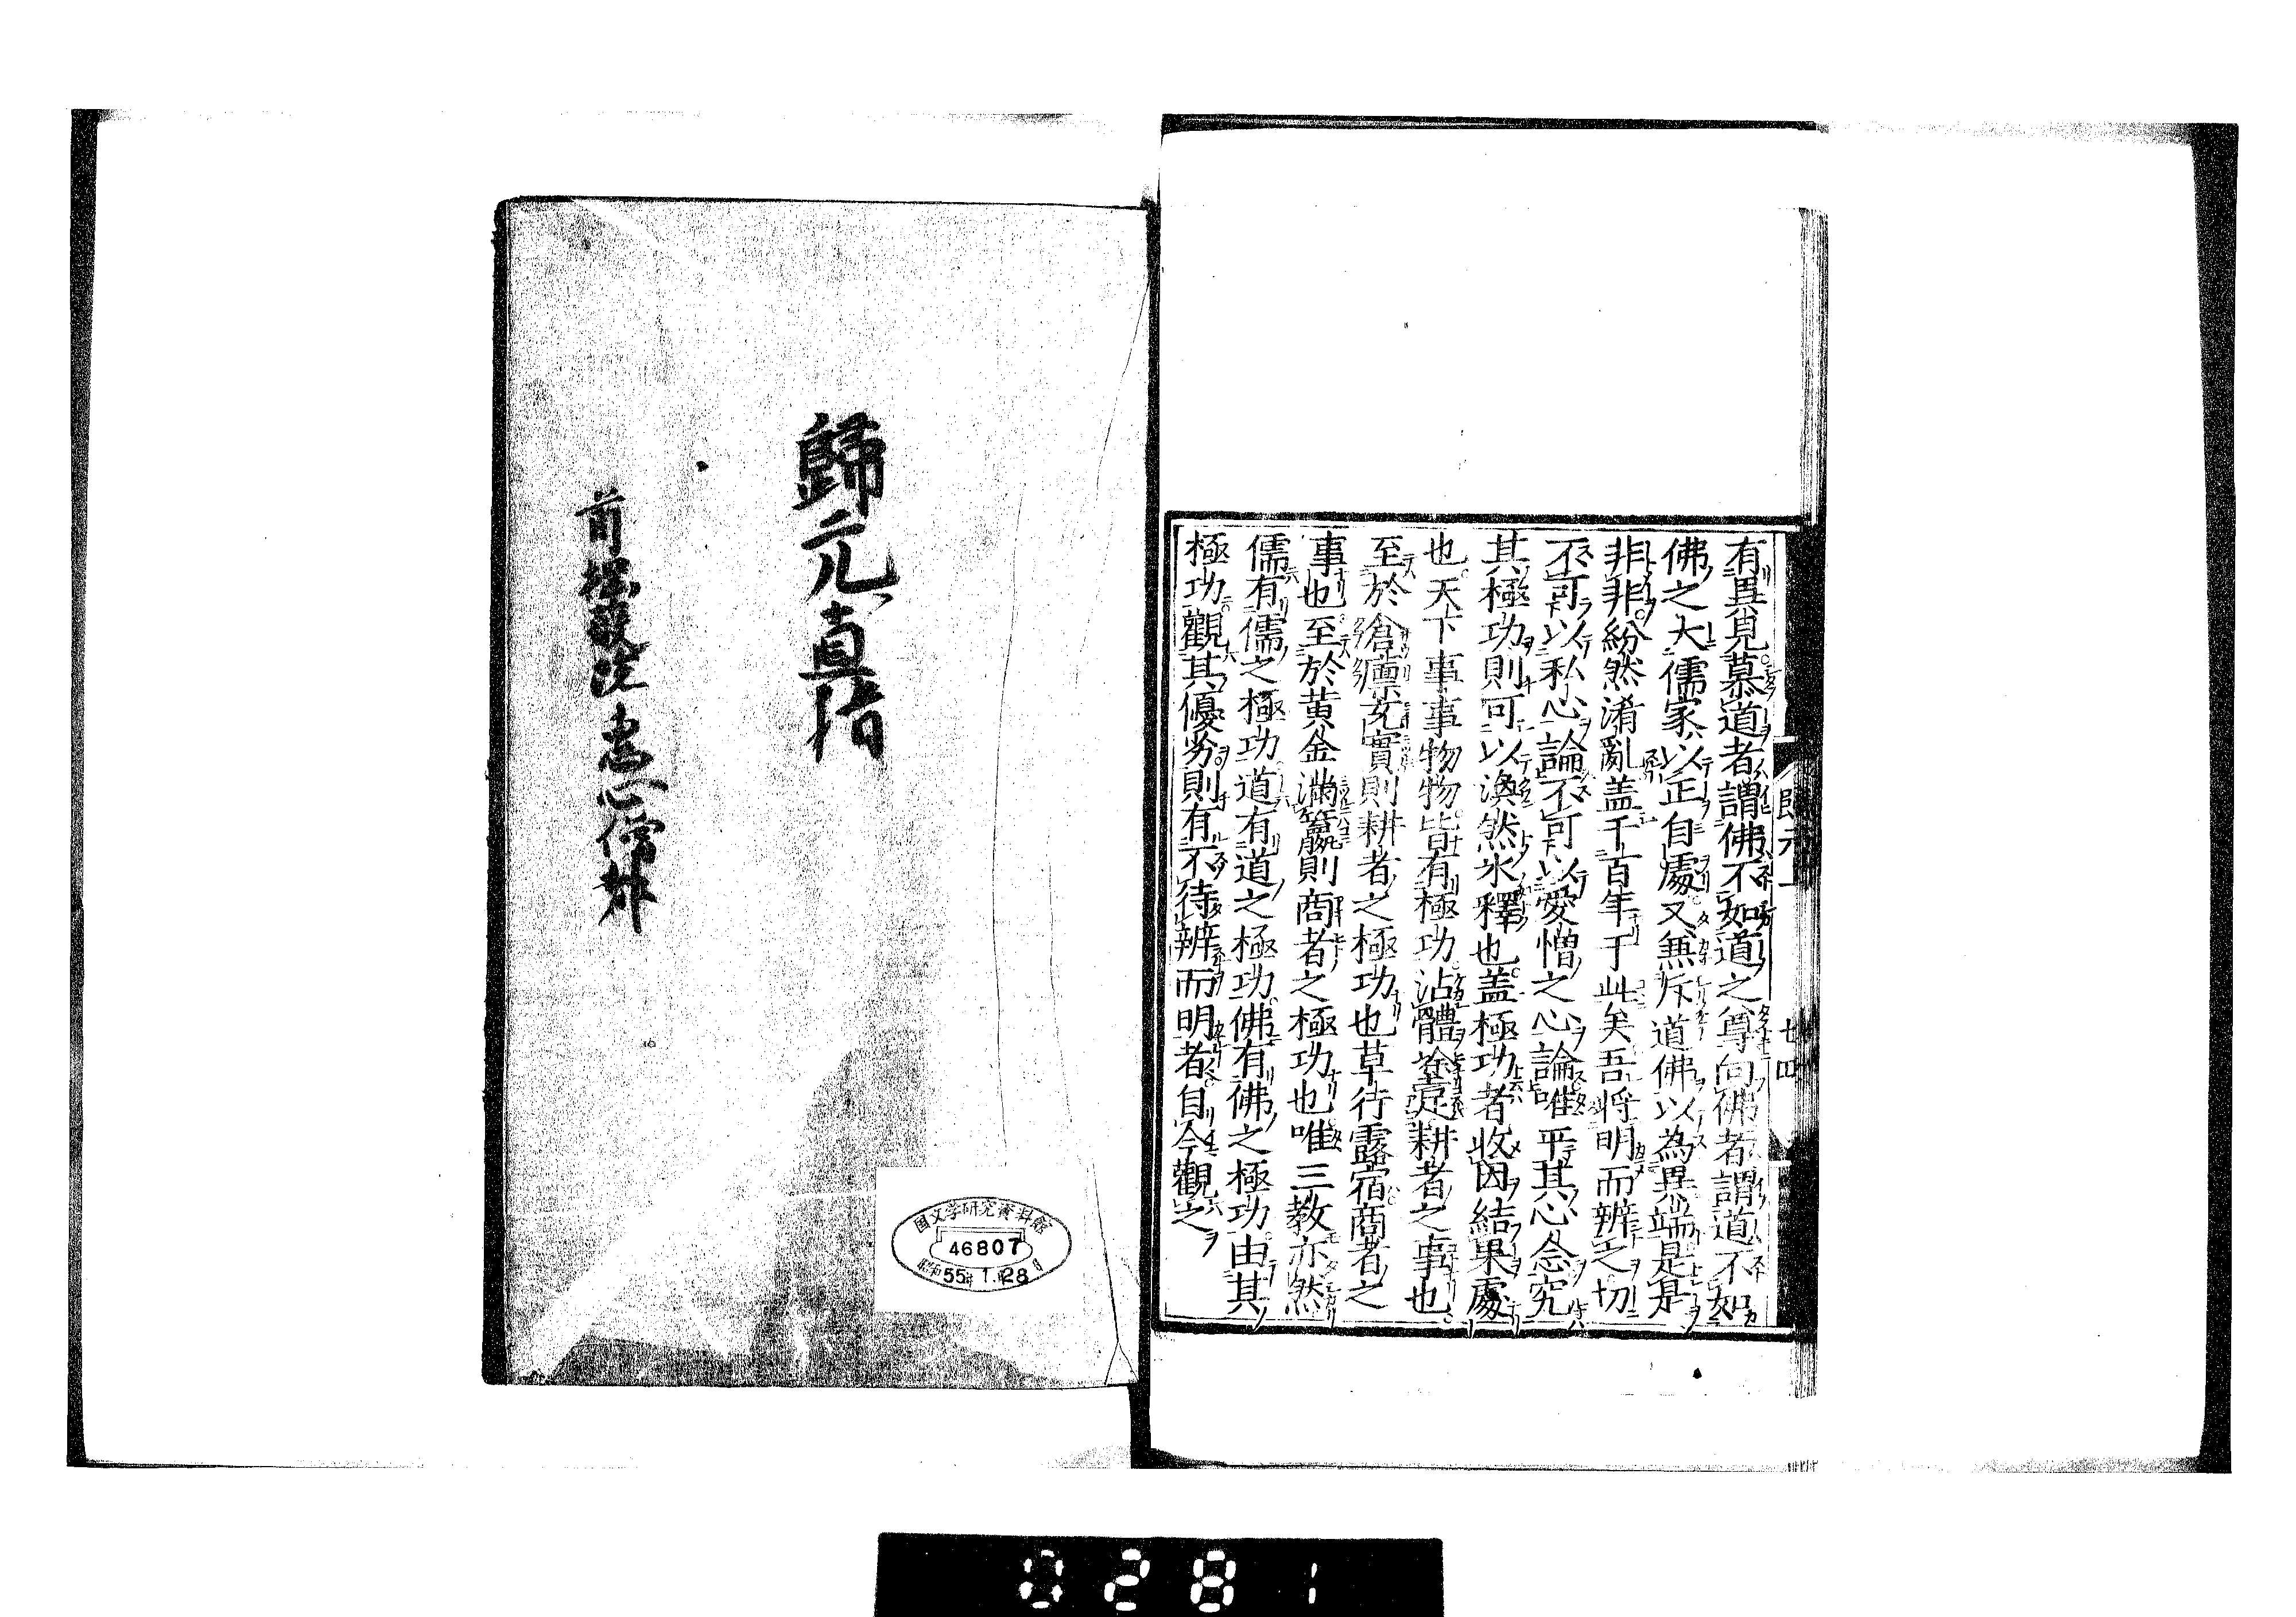 有異見慕道者謂佛不如道之尊向佛者謂道不如
佛之大儒家以正自處又無斥道佛以為異端是是
非非紛然淆亂盖千百年于此矣吾將明而辨之切
不可以私心論不可以愛憎之心論唯平其心念究
其極功則可以渙然氷釋也盖極功者收因結果處
也天下事事物物皆有極功沾體塗足耕者之事也
至於倉廩充實則耕者之極功也草行露宿商者之
事也至於黄金滿籯則商者之極功也唯三教亦然
儒有儒之極功道有道之極功佛有佛之極功由其
極功觀其優劣則有不待辨而明者自今觀之
歸元 廿四
歸元直指
前 院 惠心僧都
国文学研究資料館
46807
昭和55年1.28日
0281